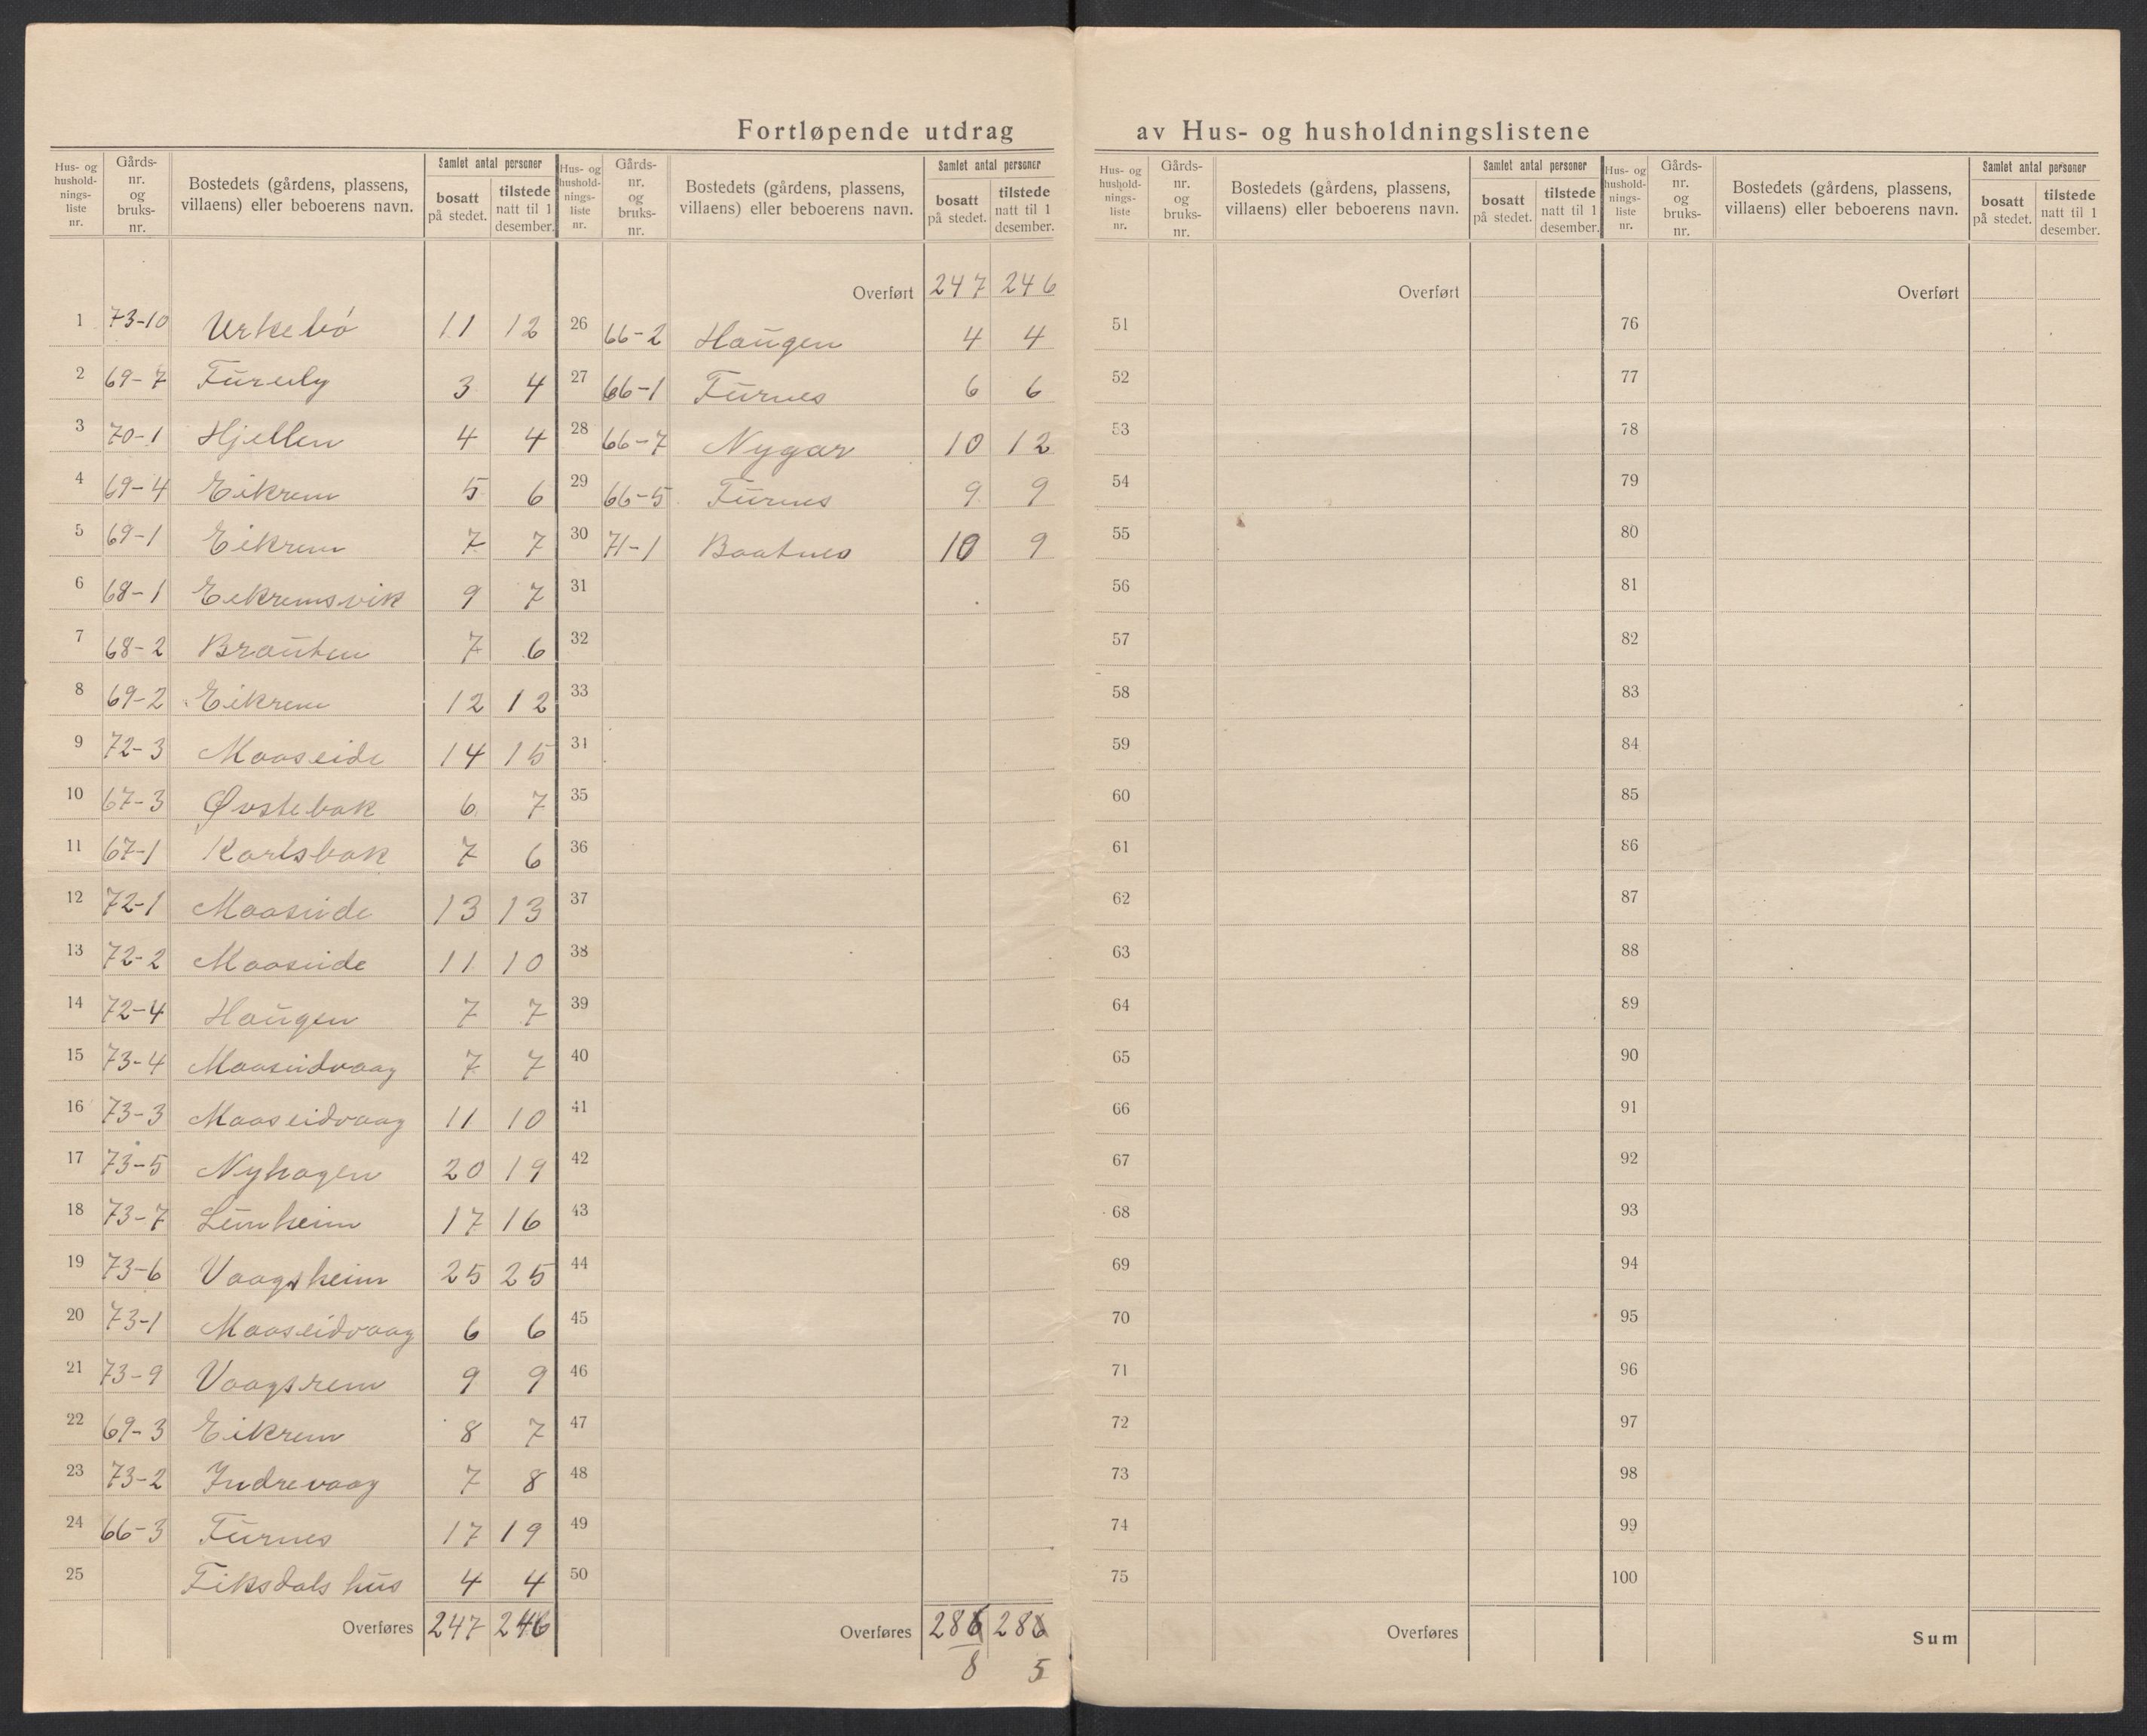 Fortløpende utdrag av Hus- og husholdningslistene
Hus- og hushold- nings- liste nr. | Gårds- nr. og bruks- nr. | Bostedets (gårdens, plassens, villaens) eller beboerens navn. | Samlet antal personer | bosatt på stedet. | tilstede natt til 1 desember.
1 73-10 Urkebø 11 12
2 69-7 Furely 3 4
3 70-1 Hjellen 4 4
4 69-4 Eikrem 5 6
5 69-1 Eikrem 7 7
6 68-1 Eikremsvik 9 7
7 68-2 Brauten 7 6
8 69-2 Eikrem 12 12
9 72-3 Maaseide 14 15
10 67-3 Øvstebak 6 7
11 67-1 Karlsbak 7 6
12 72-1 Maaseide 13 13
13 72-2 Maaseide 11 10
14 72-4 Haugen 7 7
15 73-4 Maaseidvaag 7 7
16 73-3 Maaseidvaag 11 10
17 73-5 Nyhagen 20 19
18 73-7 Lunheim 17 16
19 73-6 Vaagsheim 25 25
20 73-1 Maaseidvaag 6 6
21 73-9 Vaagsrem 9 9
22 69-3 Eikrem 8 7
23 73-2 Indrevaag 7 8
24 66-3 Furnes 17 19
25 Fiksdals hus 4 4
Overføres 247 246
Hus- og hushold- nings- liste nr. | Gårds- nr. og bruks- nr. | Bostedets (gårdens, plassens, villaens) eller beboerens navn. | Samlet antal personer | bosatt på stedet. | tilstede natt til 1 desember.
Overført 247 246
26 66-2 Haugen 4 4
27 66-1 Furnes 6 6
28 66-7 Nygar 10 12
29 66-5 Furnes 9 9
30 71-1 Baatnes 10 9
31
32
33
34
35
36
37
38
39
40
41
42
43
44
45
46
47
48
49
50
Overføres 286 286
8 5
Hus- og hushold- nings- liste nr. | Gårds- nr. og bruks- nr. | Bostedets (gårdens, plassens, villaens) eller beboerens navn. | Samlet antal personer | bosatt på stedet. | tilstede natt til 1 desember.
Overført
51
52
53
54
55
56
57
58
59
60
61
62
63
64
65
66
67
68
69
70
71
72
73
74
75
Overføres
Hus- og hushold- nings- liste nr. | Gårds- nr. og bruks- nr. | Bostedets (gårdens, plassens, villaens) eller beboerens navn. | Samlet antal personer | bosatt på stedet. | tilstede natt til 1 desember.
Overført
76
77
78
79
80
81
82
83
84
85
86
87
88
89
90
91
92
93
94
95
96
97
98
99
100
Sum